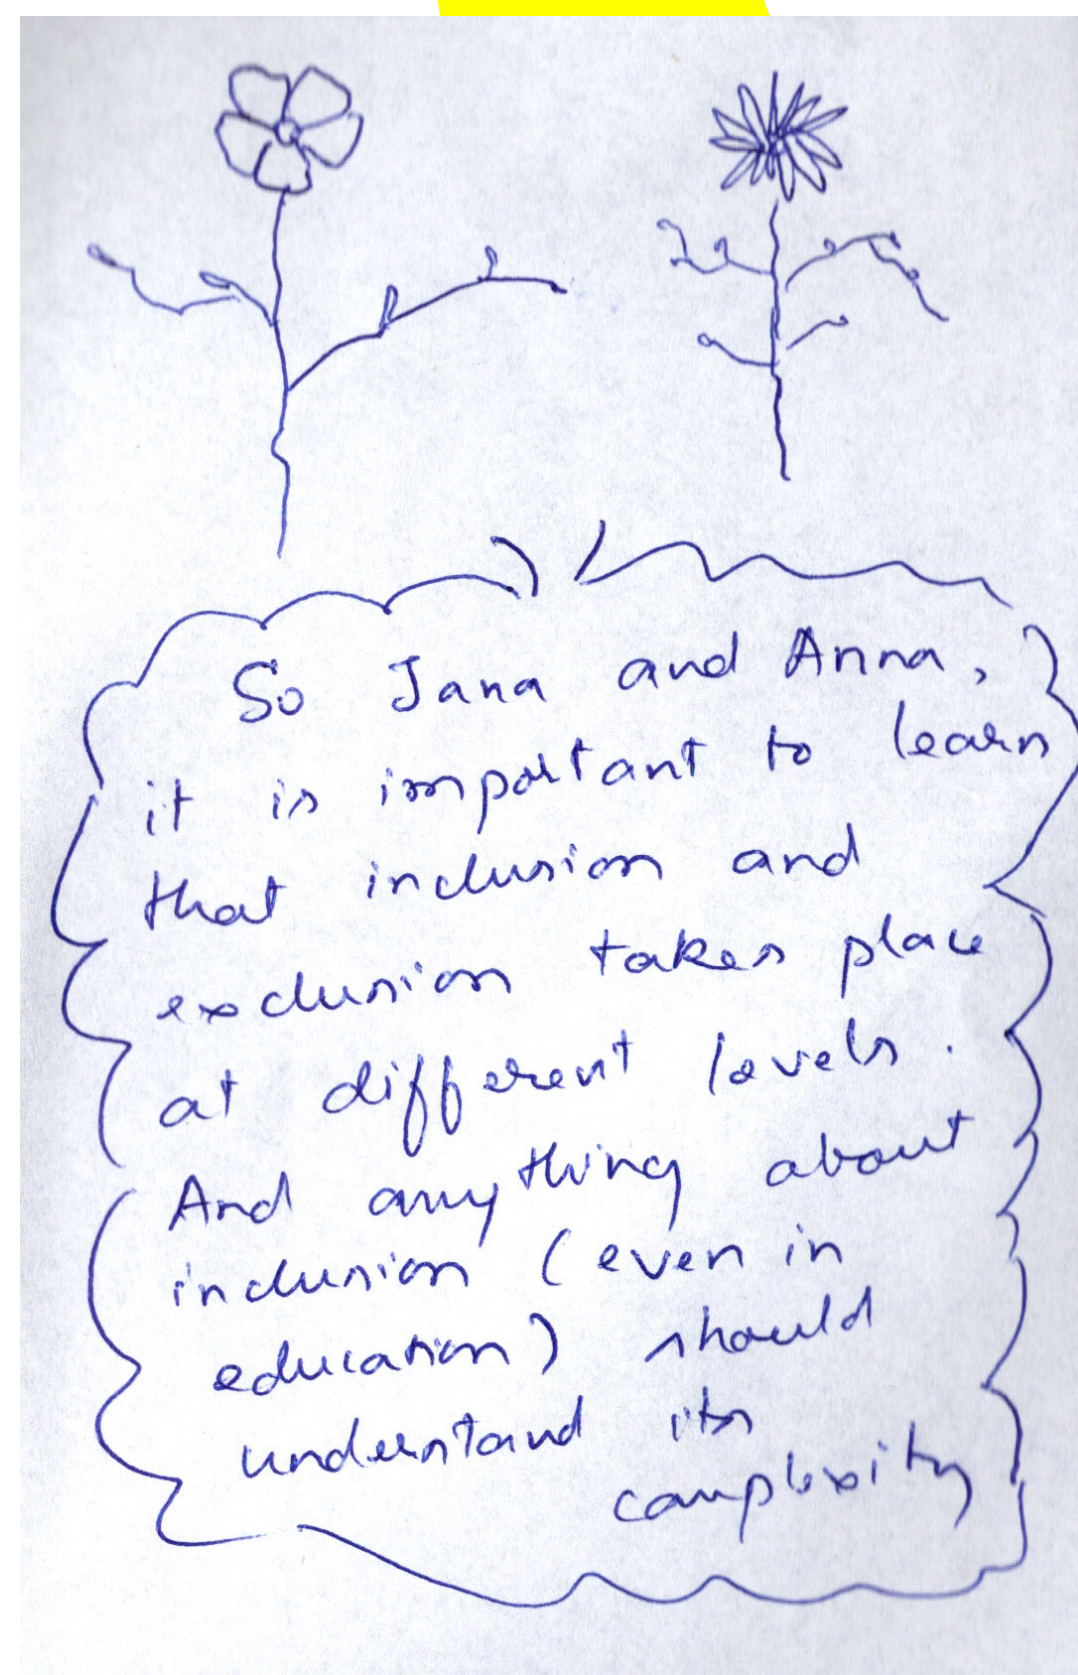 So Jana and Anna,
it is important to learn
that inclusion and
exclusion takes place
at different levels.
And anything about
inclusion (even in
education) should
understand its
complexity